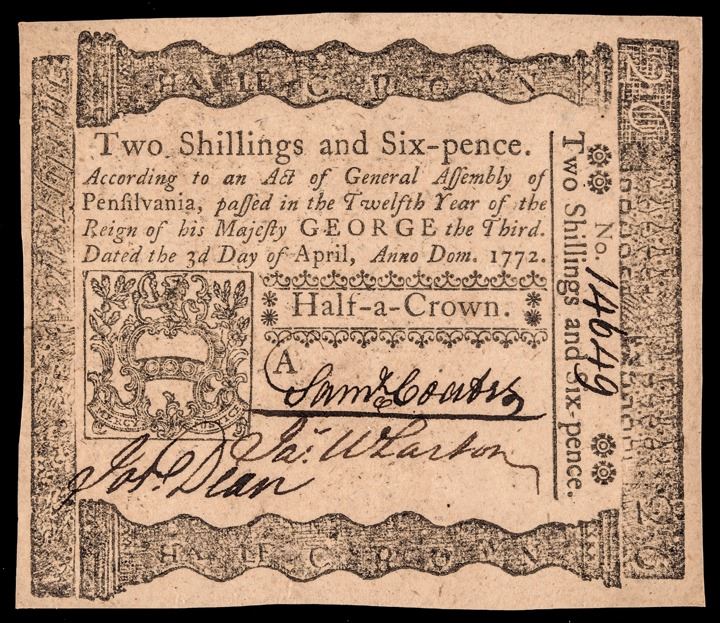 HALF-CROWN
Two Shillings and Six-pence.
According to an Act of General Aſſembly of
Penſilvania, paſſed in the Twelfth Year of the
Reign of his Majeſty GEORGE the Third.
Dated the 3d Day of April, Anno Dom. 1772.
Half-a-Crown.
A
Saml Coates
Jas. Wharton
Jos. Dean
No. 14649
Two Shillings and Six-pence.
HALF CROWN